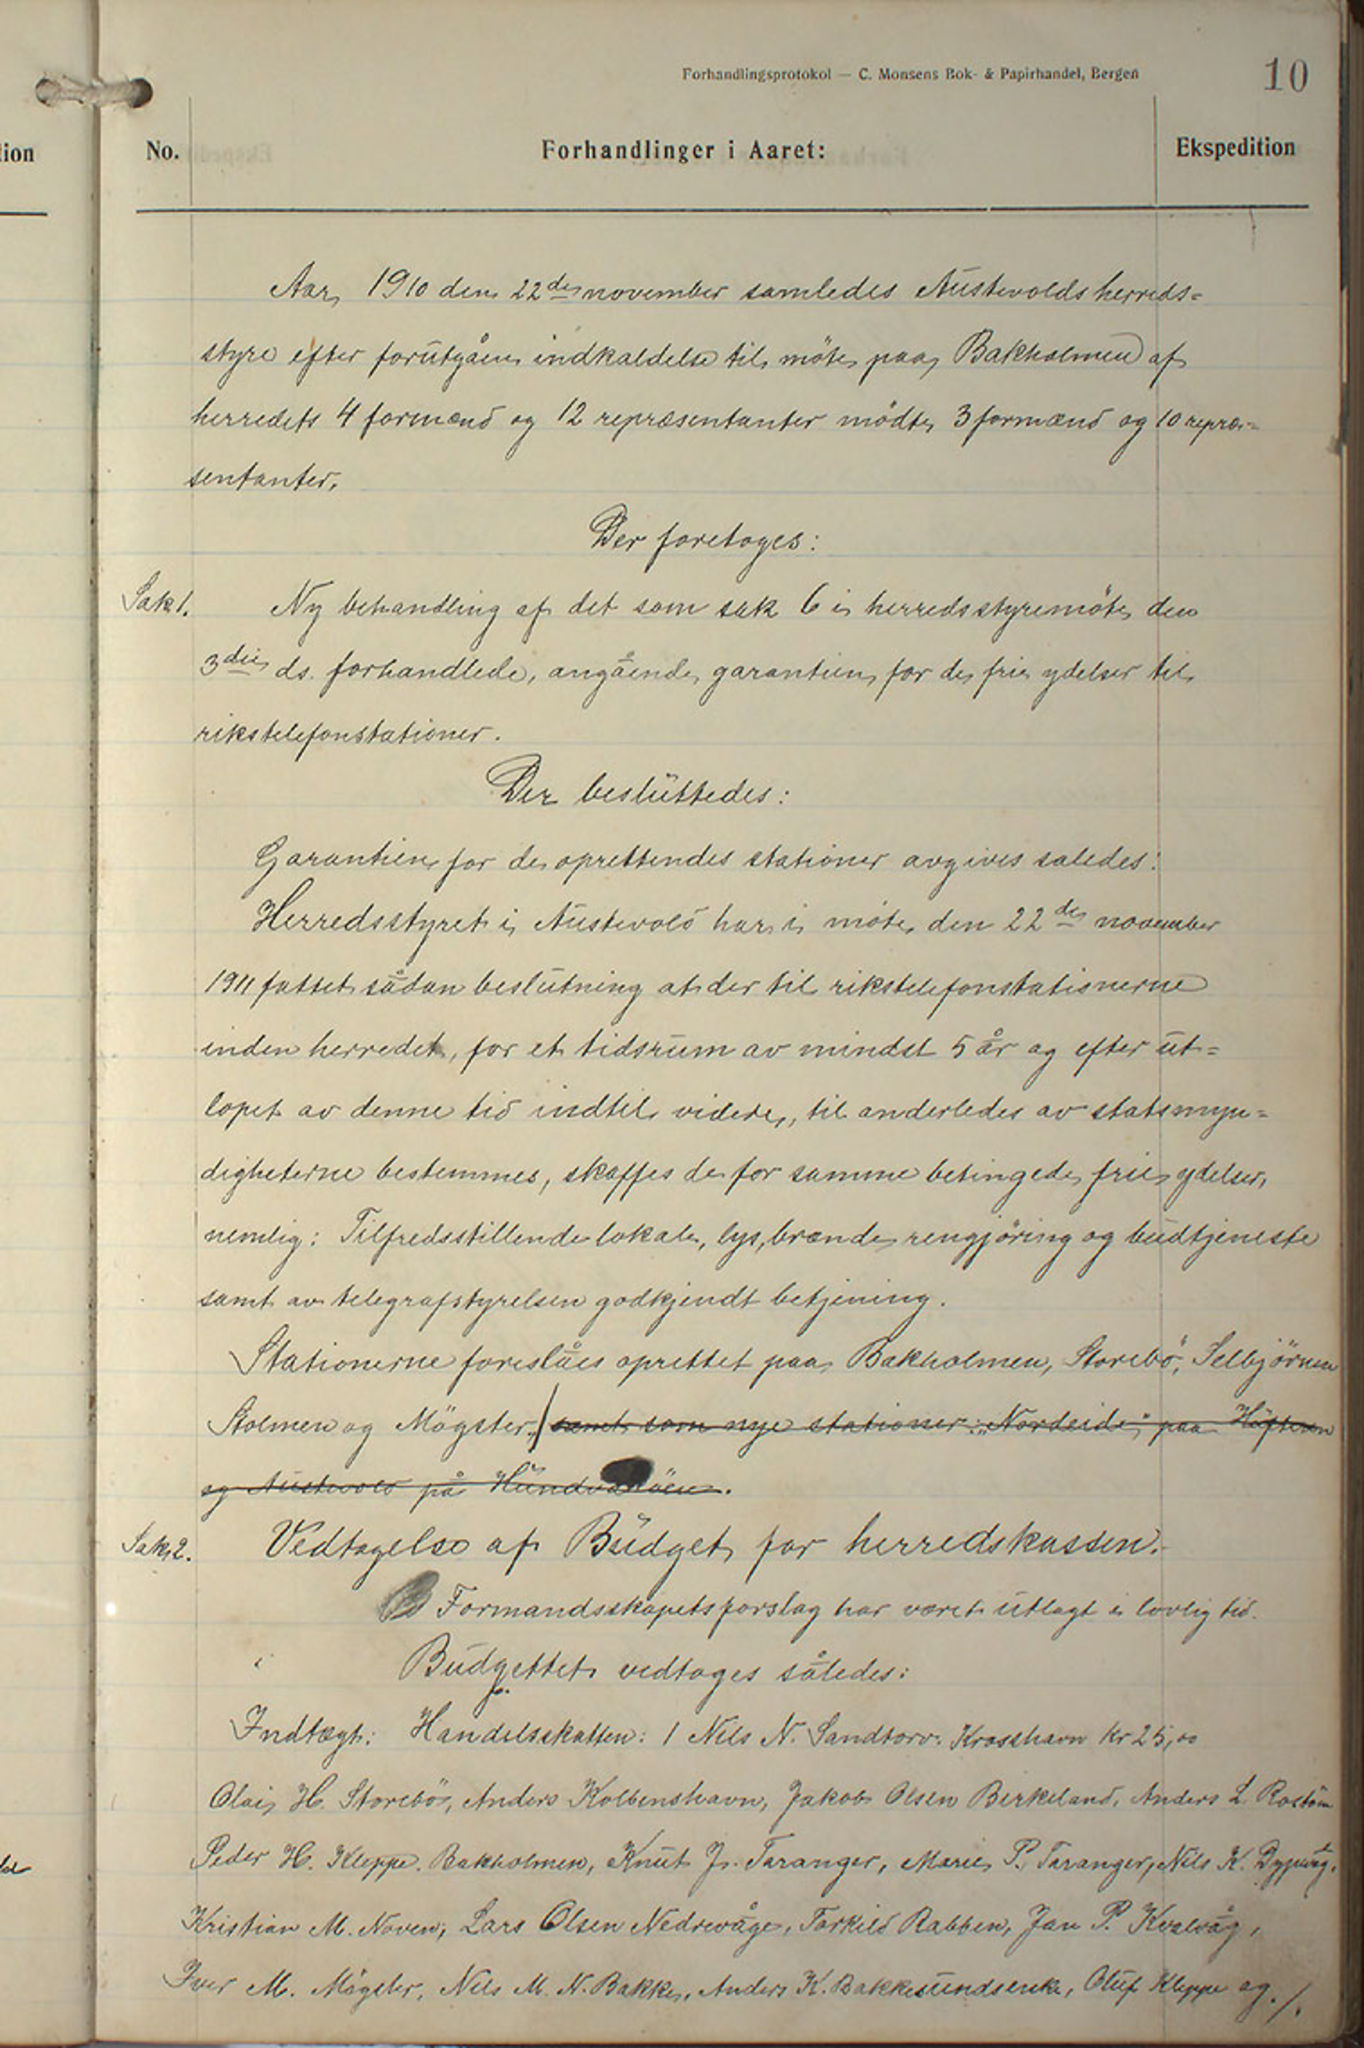 Forhandlingsprotokol — C. Monsens Bok- & Papirhandel, Bergen
10
No.
Forhandlinger i Aaret:
Ekspedition
Aar 1910 den 22de november samledes Austevolds herreds=
styre efter forutgåen indkaldelse til möte paa Bakholmen af
herredets 4 formænd og 12 repræsentanter mödte 3 formænd og 10 repræ=
sentanter.
Der foretoges:
Sak 1. Ny behandling af det som sak 6 i herredsstyremöte den
3die ds. forhandlede, angående garantien for de frie ydelser til
rikstelefonstationer.
Der besluttedes:
Garantien for de oprettendes stationer avgives saledes:
Herredsstyret i Austevold har i möte den 22de november
1911 fattet sådan beslutning at der til rikstelefonstationerne
inden herredet, for et tidsrum av mindst 5 år og efter ut=
lopet av denne tid indtil videre, til anderledes av statsmyn=
digheterne bestemmes, skaffes de for samme betingede frie ydelser,
nemlig: Tilfredsstillende lokale, lys, brænde, rengjöring og budtjeneste
samt av telegrafstyrelsen godkjendt betjening.
Stationerne foreslåes oprettet paa Bakholmen, Storebö, Selbjörnen
Stolmen og Mögster, samt som nye stationer: "Nordeide" paa Huftern
og Austevold på Hundvaköen.
Sak 2. Vedtagelse af Budget for herredskassen.
Formandsskapets forslag har været utlagt i lovlig tid.
Budgettet vedtoges således:
Indtægt: Handelsskatten: 1 Nils N. Sandtorv Krosshavn kr 25,00
Olai H. Storebö, Anders Kolbenshavn, Jakob Olsen Birkeland, Anders L. Rostöen
Peder H. Kleppe Bakholmen, Knut J. Taranger, Marie P. Taranger, Nils K. Dyping.
Kristian M. Noven, Lars Olsen Nedrevåge, Torkild Rabben, Jan P. Kvalvåg,
Iver M. Mögster, Nils M. N. Bakke, Anders K. Bakkesundsenke, Oluf Kleppe og ./.